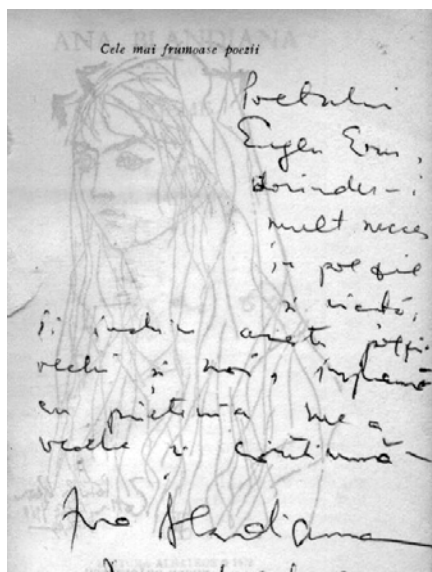 ANA BLANDIANA
Cele mai frumoase poezii
Poetului
Eugen Evu,
dorindu-i
mult succes
în poezie
și viață,
îi închin aceste poezii
vechi și noi, împreună
cu prietenia mea
veche și continuă
Ana Blandiana